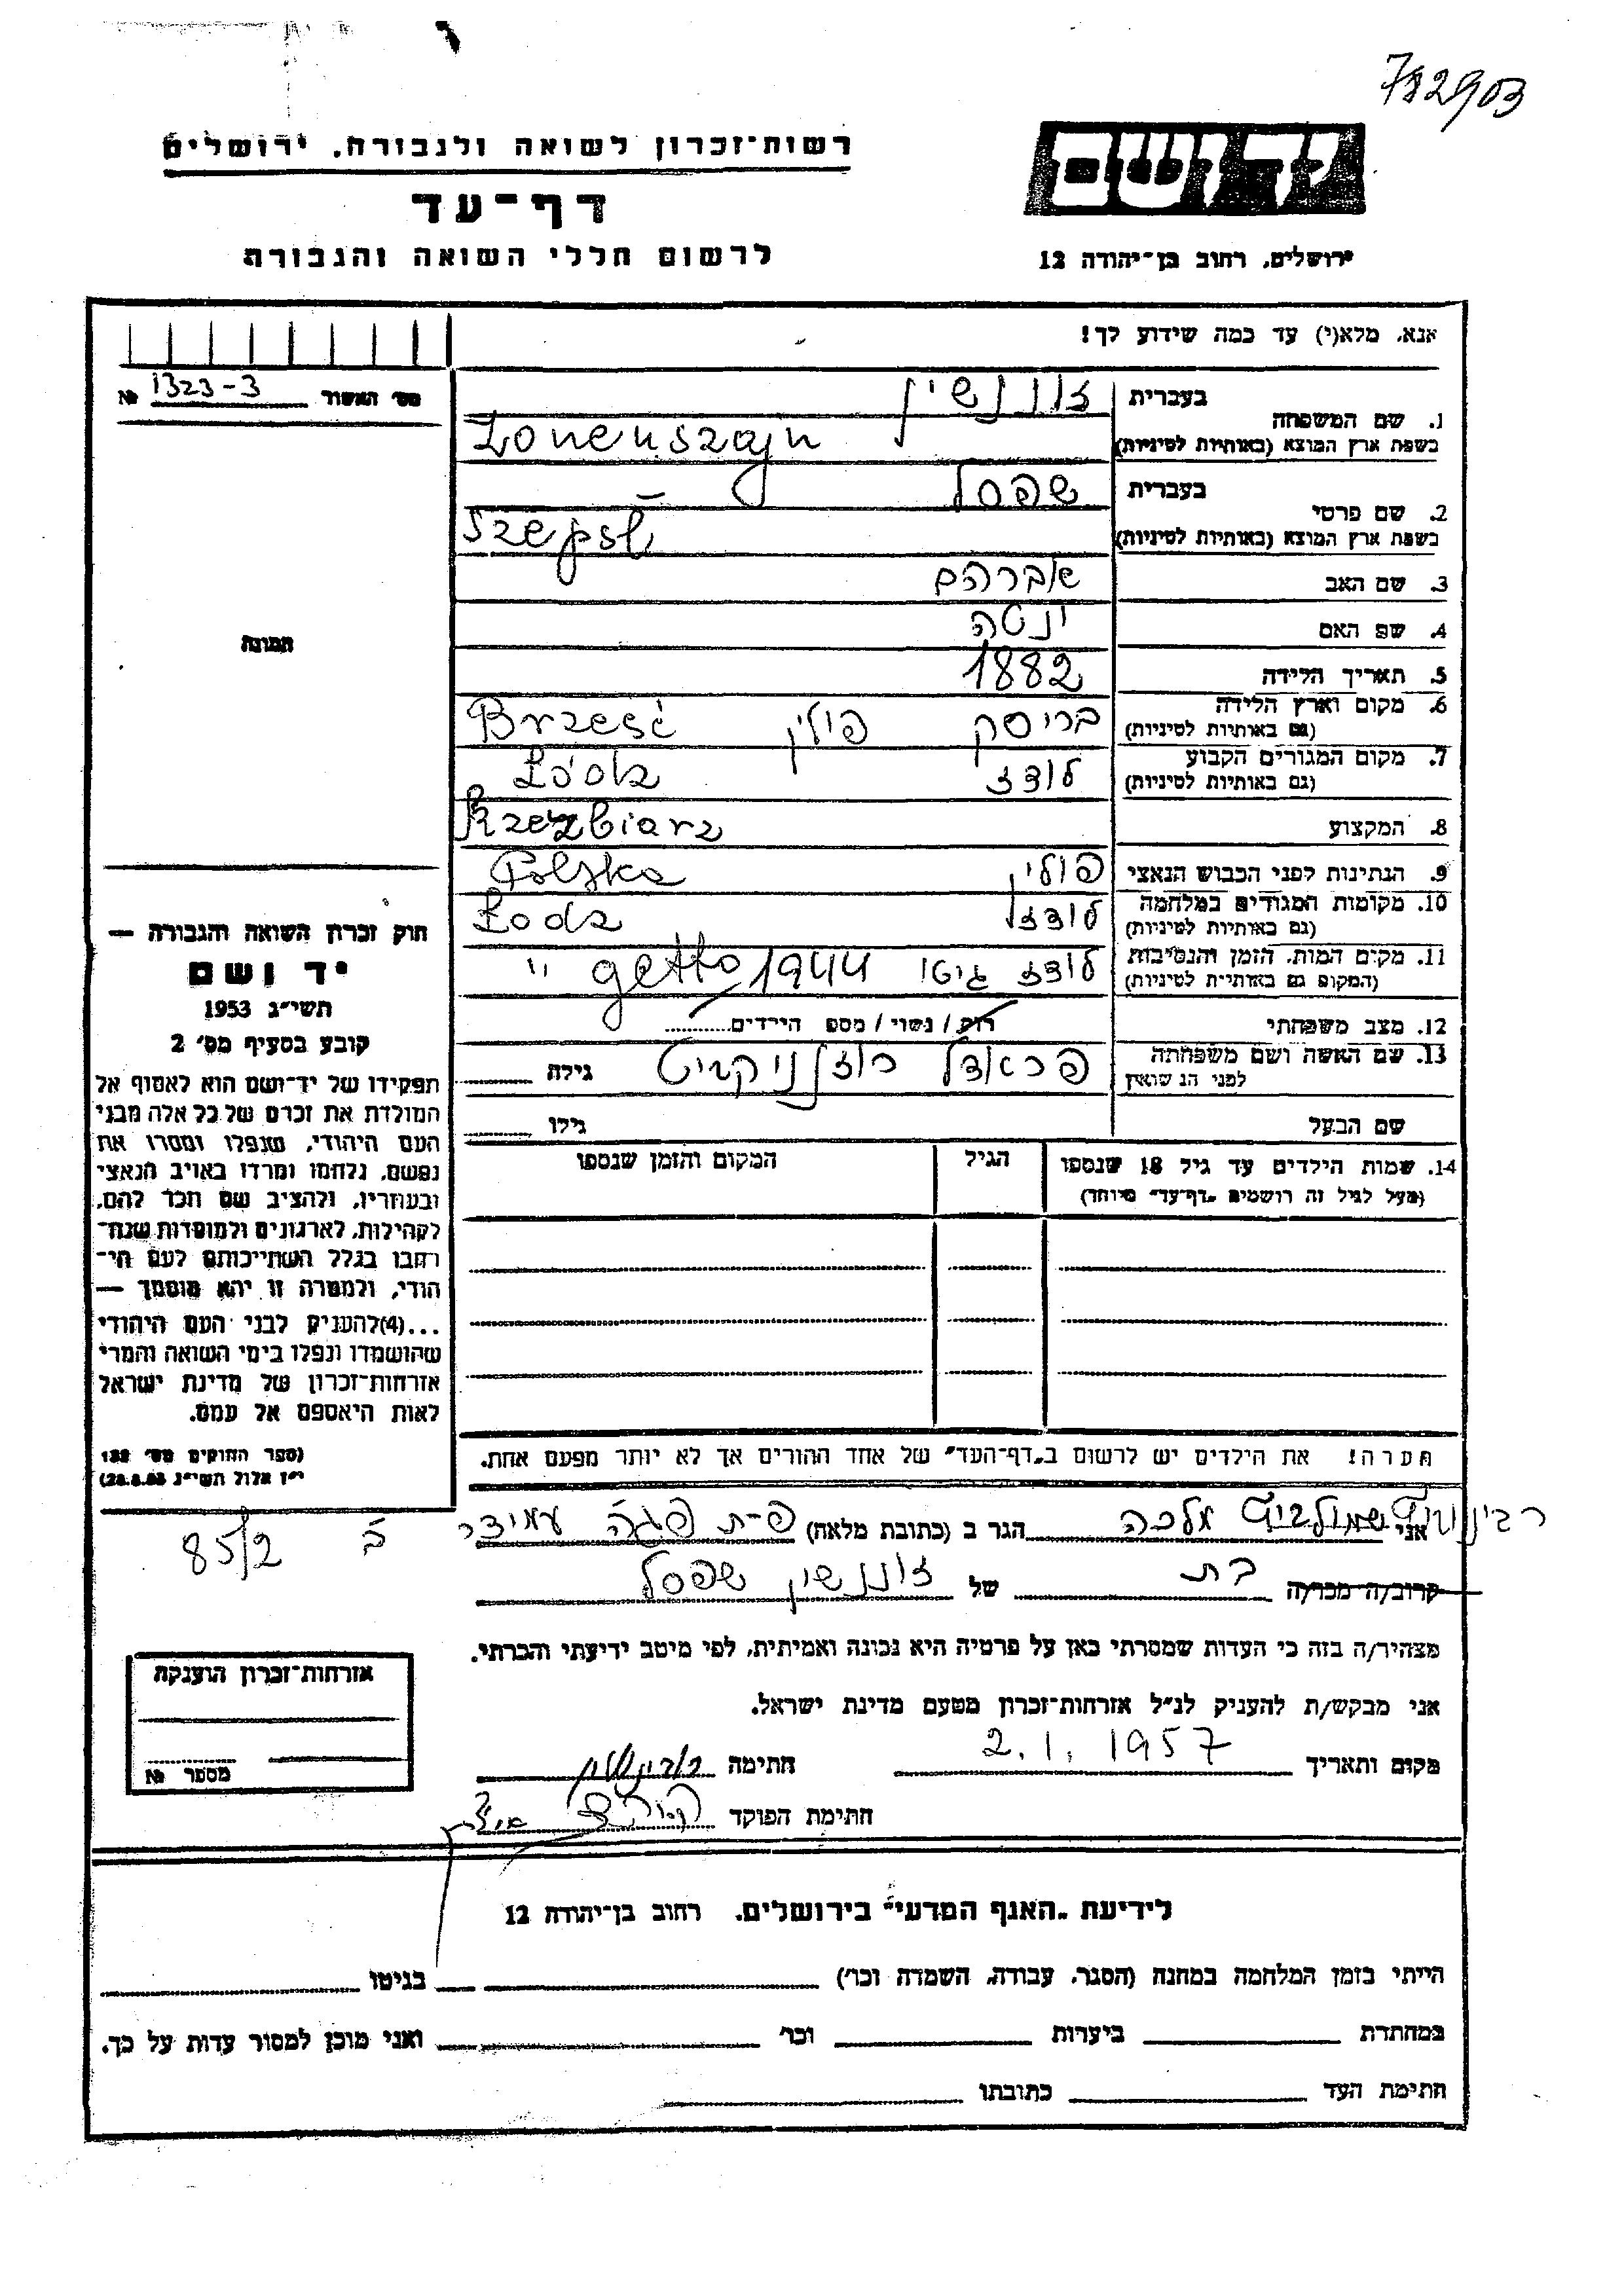 732903
רשות־זכרון לשואה ולגבורה. ירושלים
דף־עד
לרשום חללי השואה והגבורה
יד ושם
ירושלים. רחוב בן־יהודה 12
אנא. מלא(י) עד כמה שידוע לך!
מס׳ האשור 1323-3 №
תמונה
1. שם המשפחה
בעברית זוננשין
בשפת ארץ המוצא (באותיות לטיניות) Zonenszajn
2. שם פרטי
בעברית שפסל
בשפת ארץ המוצא (באותיות לטיניות) Szepsl
3. שם האב אברהם
4. שם האם ינטה
5. תאריך הלידה 1882
6. מקום וארץ הלידה בריסק פולין Brześć
(גם באותיות לטיניות)
7. מקום המגורים הקבוע לודז Łódz
(גם באותיות לטיניות)
8. המקצוע Rzezbiarz
9. הנתינות לפני הכבוש הנאצי פולין Polska
10. מקומות המגורים במלחמה לודז Łodz
(גם באותיות לטיניות)
11. מקום המות. הזמן והנסיבות לודז גיטו 1944 getto
(המקום גם באותיות לטיניות)
12. מצב משפחתי רוק/נשוי/מספ הילדים
13. שם האשה ושם משפחתה
לפני הנשואין גילה
שם הבעל גילו
14. שמות הילדים עד גיל 18 שנספו הגיל המקום והזמן שנספו
(מעל לגיל זה רושמים „דף־עד״ מיוחד)
הערה! את הילדים יש לרשום ב„דף־העד״ של אחד ההורים אך לא יותר מפעם אחת.
חוק זכרון השואה והגבורה —
יד ושם
תשי״ג 1953
קובע בסעיף מס׳ 2
תפקידו של יד־ושם הוא לאסוף אל
המולדת את זכרם של כל אלה מבני
העם היהודי, שנפלו ומסרו את
נפשם, נלחמו ומרדו באויב הנאצי
ובעוזריו, ולהציב שם וזכר להם,
לקהילות, לארגונים ולמוסדות שנח־
רבו בגלל השתייכותם לעם הי־
הודי, ולמטרה זו יהא מוסמך —
...(4) להעניק לבני העם היהודי
שהושמדו ונפלו בימי השואה והמרי
אזרחות־זכרון של מדינת ישראל
לאות היאספם אל עמם.
(ספר החוקים מס׳ 132
י״ז אלול תשי״ג 28.8.53)
אני מלכה הגר ב (כתובת מלאה) פ־ת פגה עמידר
85/2
קרוב/ה מכר/ה בת של זוננשין שפסל
מצהיר/ה בזה כי העדות שמסרתי כאן על פרטיה היא נכונה ואמיתית, לפי מיטב ידיעתי והכרתי.
אני מבקש/ת להעניק לנ״ל אזרחות־זכרון מטעם מדינת ישראל.
מקום ותאריך 2.1.1957 חתימה
חתימת הפוקד
אזרחות־זכרון הוענקה
מספר №
לידיעת „האגף המדעי״ בירושלים. רחוב בן־יהודה 12
הייתי בזמן המלחמה במחנה (הסגר, עבודה, השמדה וכו׳) בגיטו
במחתרת ביערות וכו׳ ואני מוכן למסור עדות על כך.
חתימת העד כתובתו